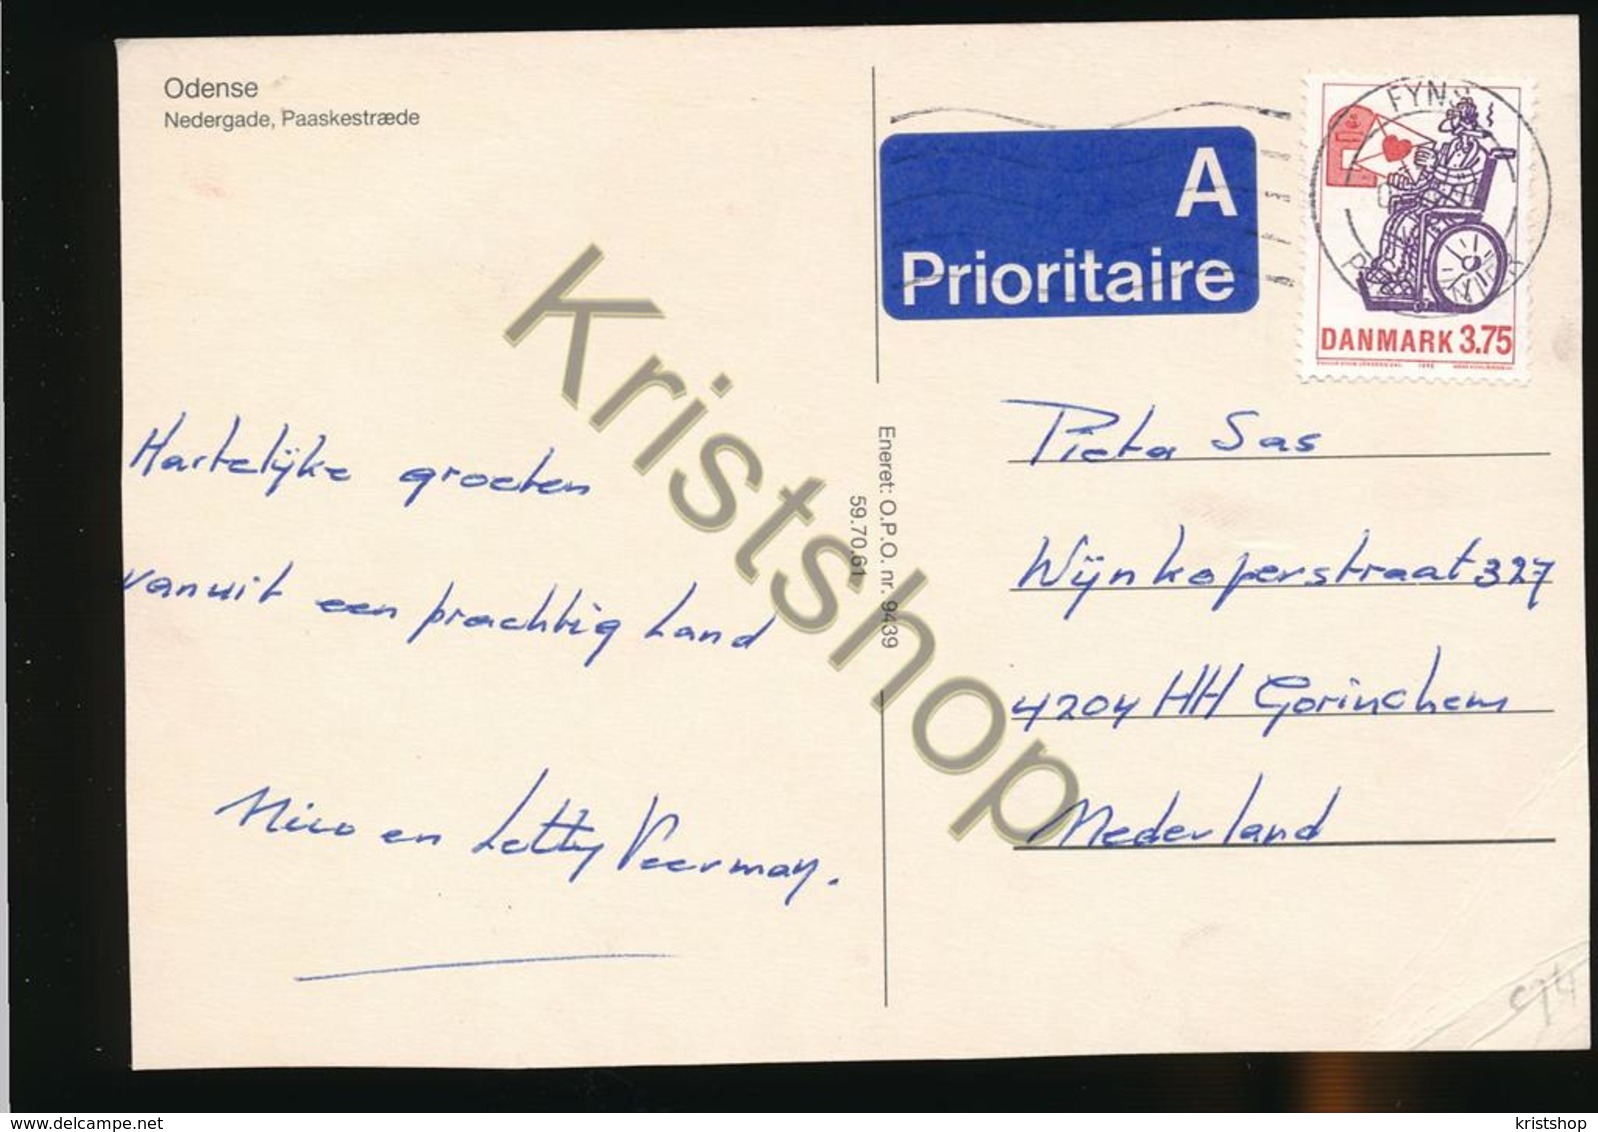 Odense
Nedergade, Paaskestræde
A
Prioritaire
FYNS
DANMARK 3.75
Hartelijke groeten
vanuit een prachtig land
Nico en Letty Veerman.
Eneret: O.P.O. nr. 9439
59.70.61
Pieta Sas
Wijnkoperstraat 327
4204 HH Gorinchem
Nederland
c14
Kristshop
www.delcampe.net
kristshop